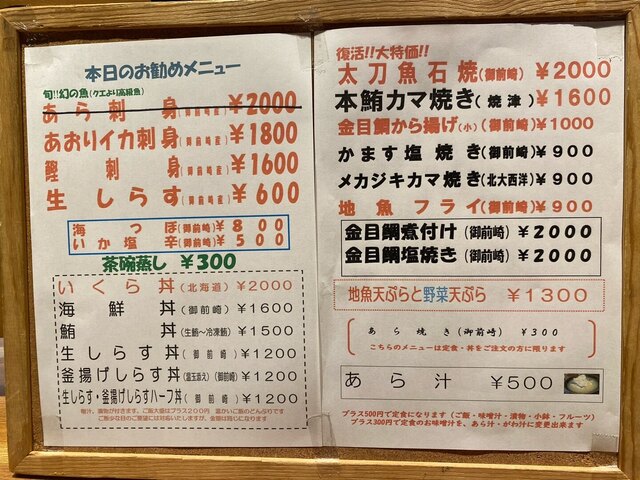 本日のお勧めメニュー
旬!!幻の魚(クエより高級魚)
あら刺身(御前崎産)¥2000
あおりイカ刺身(御前崎産)¥1800
鰹刺身(御前崎産)¥1600
生しらす(御前崎産)¥600
海つぼ(御前崎)¥800
いか塩辛(御前崎)¥500
茶碗蒸し ¥300
いくら丼(北海道)¥2000
海鮮丼(御前崎)¥1600
鮪丼(生鮪～冷凍鮪)¥1500
生しらす丼(御前崎)¥1200
釜揚げしらす丼(温玉添え)(御前崎)¥1200
生しらす・釜揚げしらすハーフ丼(御前崎)¥1200
味噌汁、漬物が付きます。ご飯大盛はプラス200円 温かいご飯のどんぶりです
ご飯少な目のご要望には対応いたしますが、金額は同じになります
復活!!大特価!!
太刀魚石焼(御前崎)¥2000
本鮪カマ焼き(焼津)¥1600
金目鯛から揚げ(小)(御前崎)¥1000
かます塩焼き(御前崎)¥900
メカジキカマ焼き(北大西洋)¥900
地魚フライ(御前崎)¥900
金目鯛煮付け(御前崎)¥2000
金目鯛塩焼き(御前崎)¥2000
地魚天ぷらと野菜天ぷら ¥1300
あら焼き(御前崎) ¥300
こちらのメニューは定食・丼をご注文の方に限ります
あら汁 ¥500
プラス500円で定食になります(ご飯・味噌汁・漬物・小鉢・フルーツ)
プラス300円で定食のお味噌汁を、あら汁・がわ汁に変更出来ます